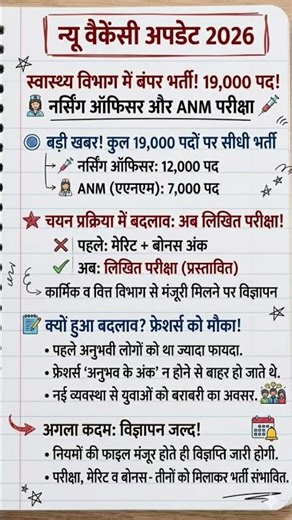 न्यू वैकेंसी अपडेट 2026
स्वास्थ्य विभाग में बंपर भर्ती! 19,000 पद!
नर्सिंग ऑफिसर और ANM परीक्षा
बड़ी खबर! कुल 19,000 पदों पर सीधी भर्ती
नर्सिंग ऑफिसर: 12,000 पद
ANM (एएनएम): 7,000 पद
चयन प्रक्रिया में बदलाव: अब लिखित परीक्षा!
पहले: मेरिट + बोनस अंक
अब: लिखित परीक्षा (प्रस्तावित)
कार्मिक व वित्त विभाग से मंजूरी मिलने पर विज्ञापन
क्यों हुआ बदलाव? फ्रेशर्स को मौका!
• पहले अनुभवी लोगों को था ज्यादा फायदा.
• फ्रेशर्स 'अनुभव के अंक' न होने से बाहर हो जाते थे.
• नई व्यवस्था से युवाओं को बराबरी का अवसर.
अगला कदम: विज्ञापन जल्द!
• नियमों की फाइल मंजूर होते ही विज्ञप्ति जारी होगी.
• परीक्षा, मेरिट व बोनस- तीनों को मिलाकर भर्ती संभावित.